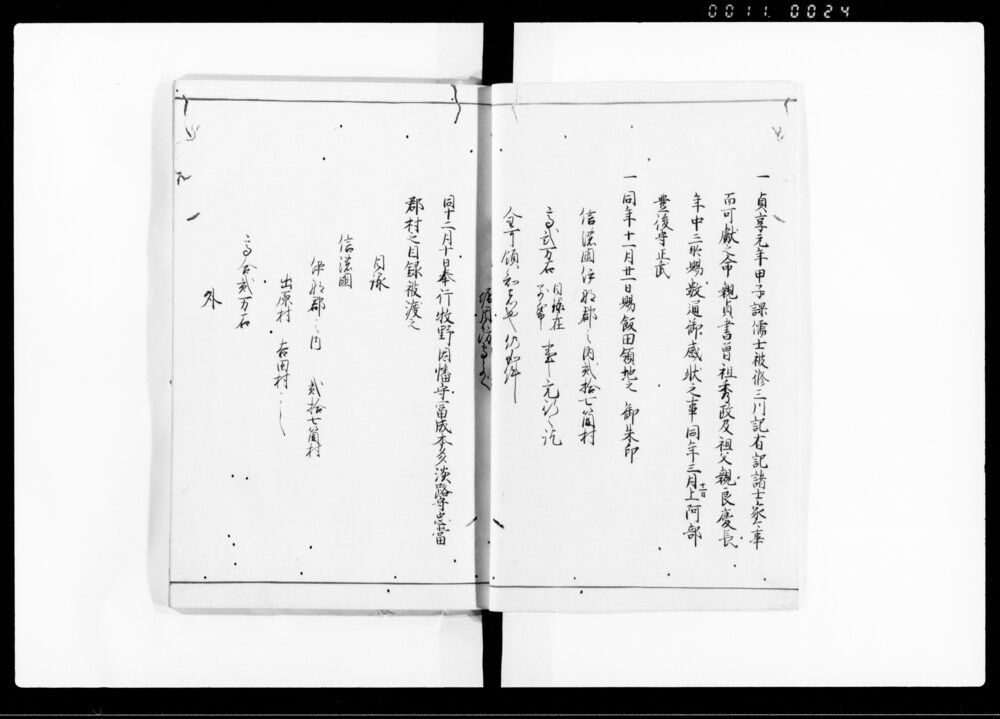 0011 0024
一 貞享元年甲子課儒士被修三川記有記諸士家之事
而可献之命親貞書曽祖秀政及祖父親良慶長
年中三所賜数通御感状之事同年三月十二日上阿部
豊後守正武
一 同年十一月廿一日賜飯田領地之 御朱印
信濃國伊那郡之内貳拾七箇村
高貳万石 目録在別紙 事充行之訖
全可領知者也仍如件
堀周防守とのへ
同十二月十日奉行牧野因幡守富成本多淡路守忠當
郡村之目録被渡之
目録
信濃國
伊那郡之内 貳拾七箇村
出原村 吉田村
高合貳万石
外